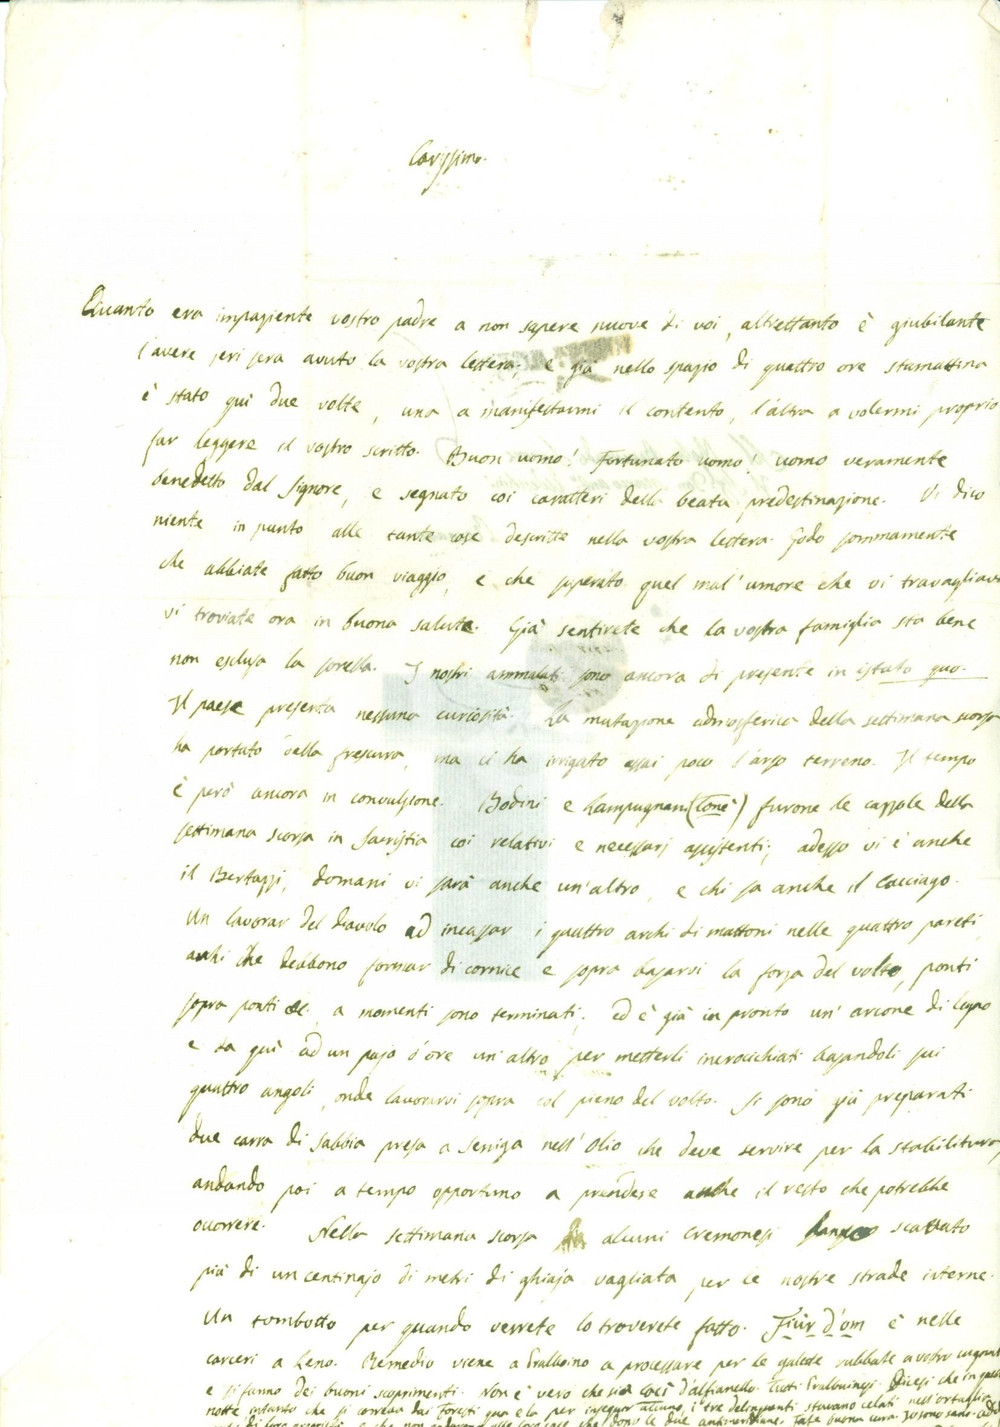 Carissimo.
Quanto era impaziente vostro padre a non sapere nuove di voi, altrettanto è giubilante
l'avere jeri sera avuto la vostra lettera; e già nello spazio di quattro ore stamattina
è stato quì due volte, una a manifestarmi il contento, l'altra a volermi proprio
far leggere il vostro scritto. Buon uomo! Fortunato uomo! uomo veramente
benedetto dal Signore, e segnato coi caratteri della beata predestinazione. Vi dico
niente in punto alle tante cose descritte nella vostra lettera. Godo sommamente
che abbiate fatto buon viaggio, e che superato quel mal'umore che vi travagliava
vi troviate ora in buona salute. Già sentirete che la vostra famiglia sta bene
non esclusa la sorella. I nostri ammalati sono ancora di presente in istatu quo.
Il paese presenta nessuna curiosità. La mutazione admosferica della settimana scorsa
ha portato della frescura, ma ci ha irrigato assai poco l'arso terreno. Il tempo
è però ancora in convulsione. Bodini e Lampugnani (Tonè) furono le cazzole della
settimana scorsa in Sacristia coi relativi e necessarj assistenti; adesso vi è anche
il Bertazzi, domani vi sarà anche un'altro, e chi sa anche il Cacciago.
Un lavorar del diavolo ad incassar i quattro archi di mattoni nelle quattro pareti,
archi che debbono formar di cornice e sopra basarsi la forza del volto, ponti
sopra ponti &c. a momenti sono terminati; ed è già in pronto un'arcone di legno
e da quì ad un pajo d'ore un'altro per metterli incrocicchiati basandoli sui
quattro angoli, onde lavorarvi sopra col pieno del volto. Si sono già preparati
due carra di sabbia presa a Seniga nell'Olio che deve servire per la stabilitura,
andando poi a tempo opportuno a prendere anche il resto che potrebbe
occorrere. Nella settimana scorsa alcuni Cremonesi hanno scattato
più di un centinajo di metri di ghiaja vagliata per le nostre strade interne.
Un tombotto per quando verrete lo troverete fatto. Fiür d'om è nelle
carceri a Leno. Remedio viene a Pralboino a processare per le galete rubbate a vostro
e si fanno dei buoni scoprimenti. Non è vero che sia d'alfianello. Tutti Pralbuinesi. Dicesi che in
notte intanto che si correva dai Foresti qua e la per inseguir alcuno, i tre delinquenti stavano celati nell'ortaglia
che dopo le due antimeridiane. Fate buona cura. Io sono sano.